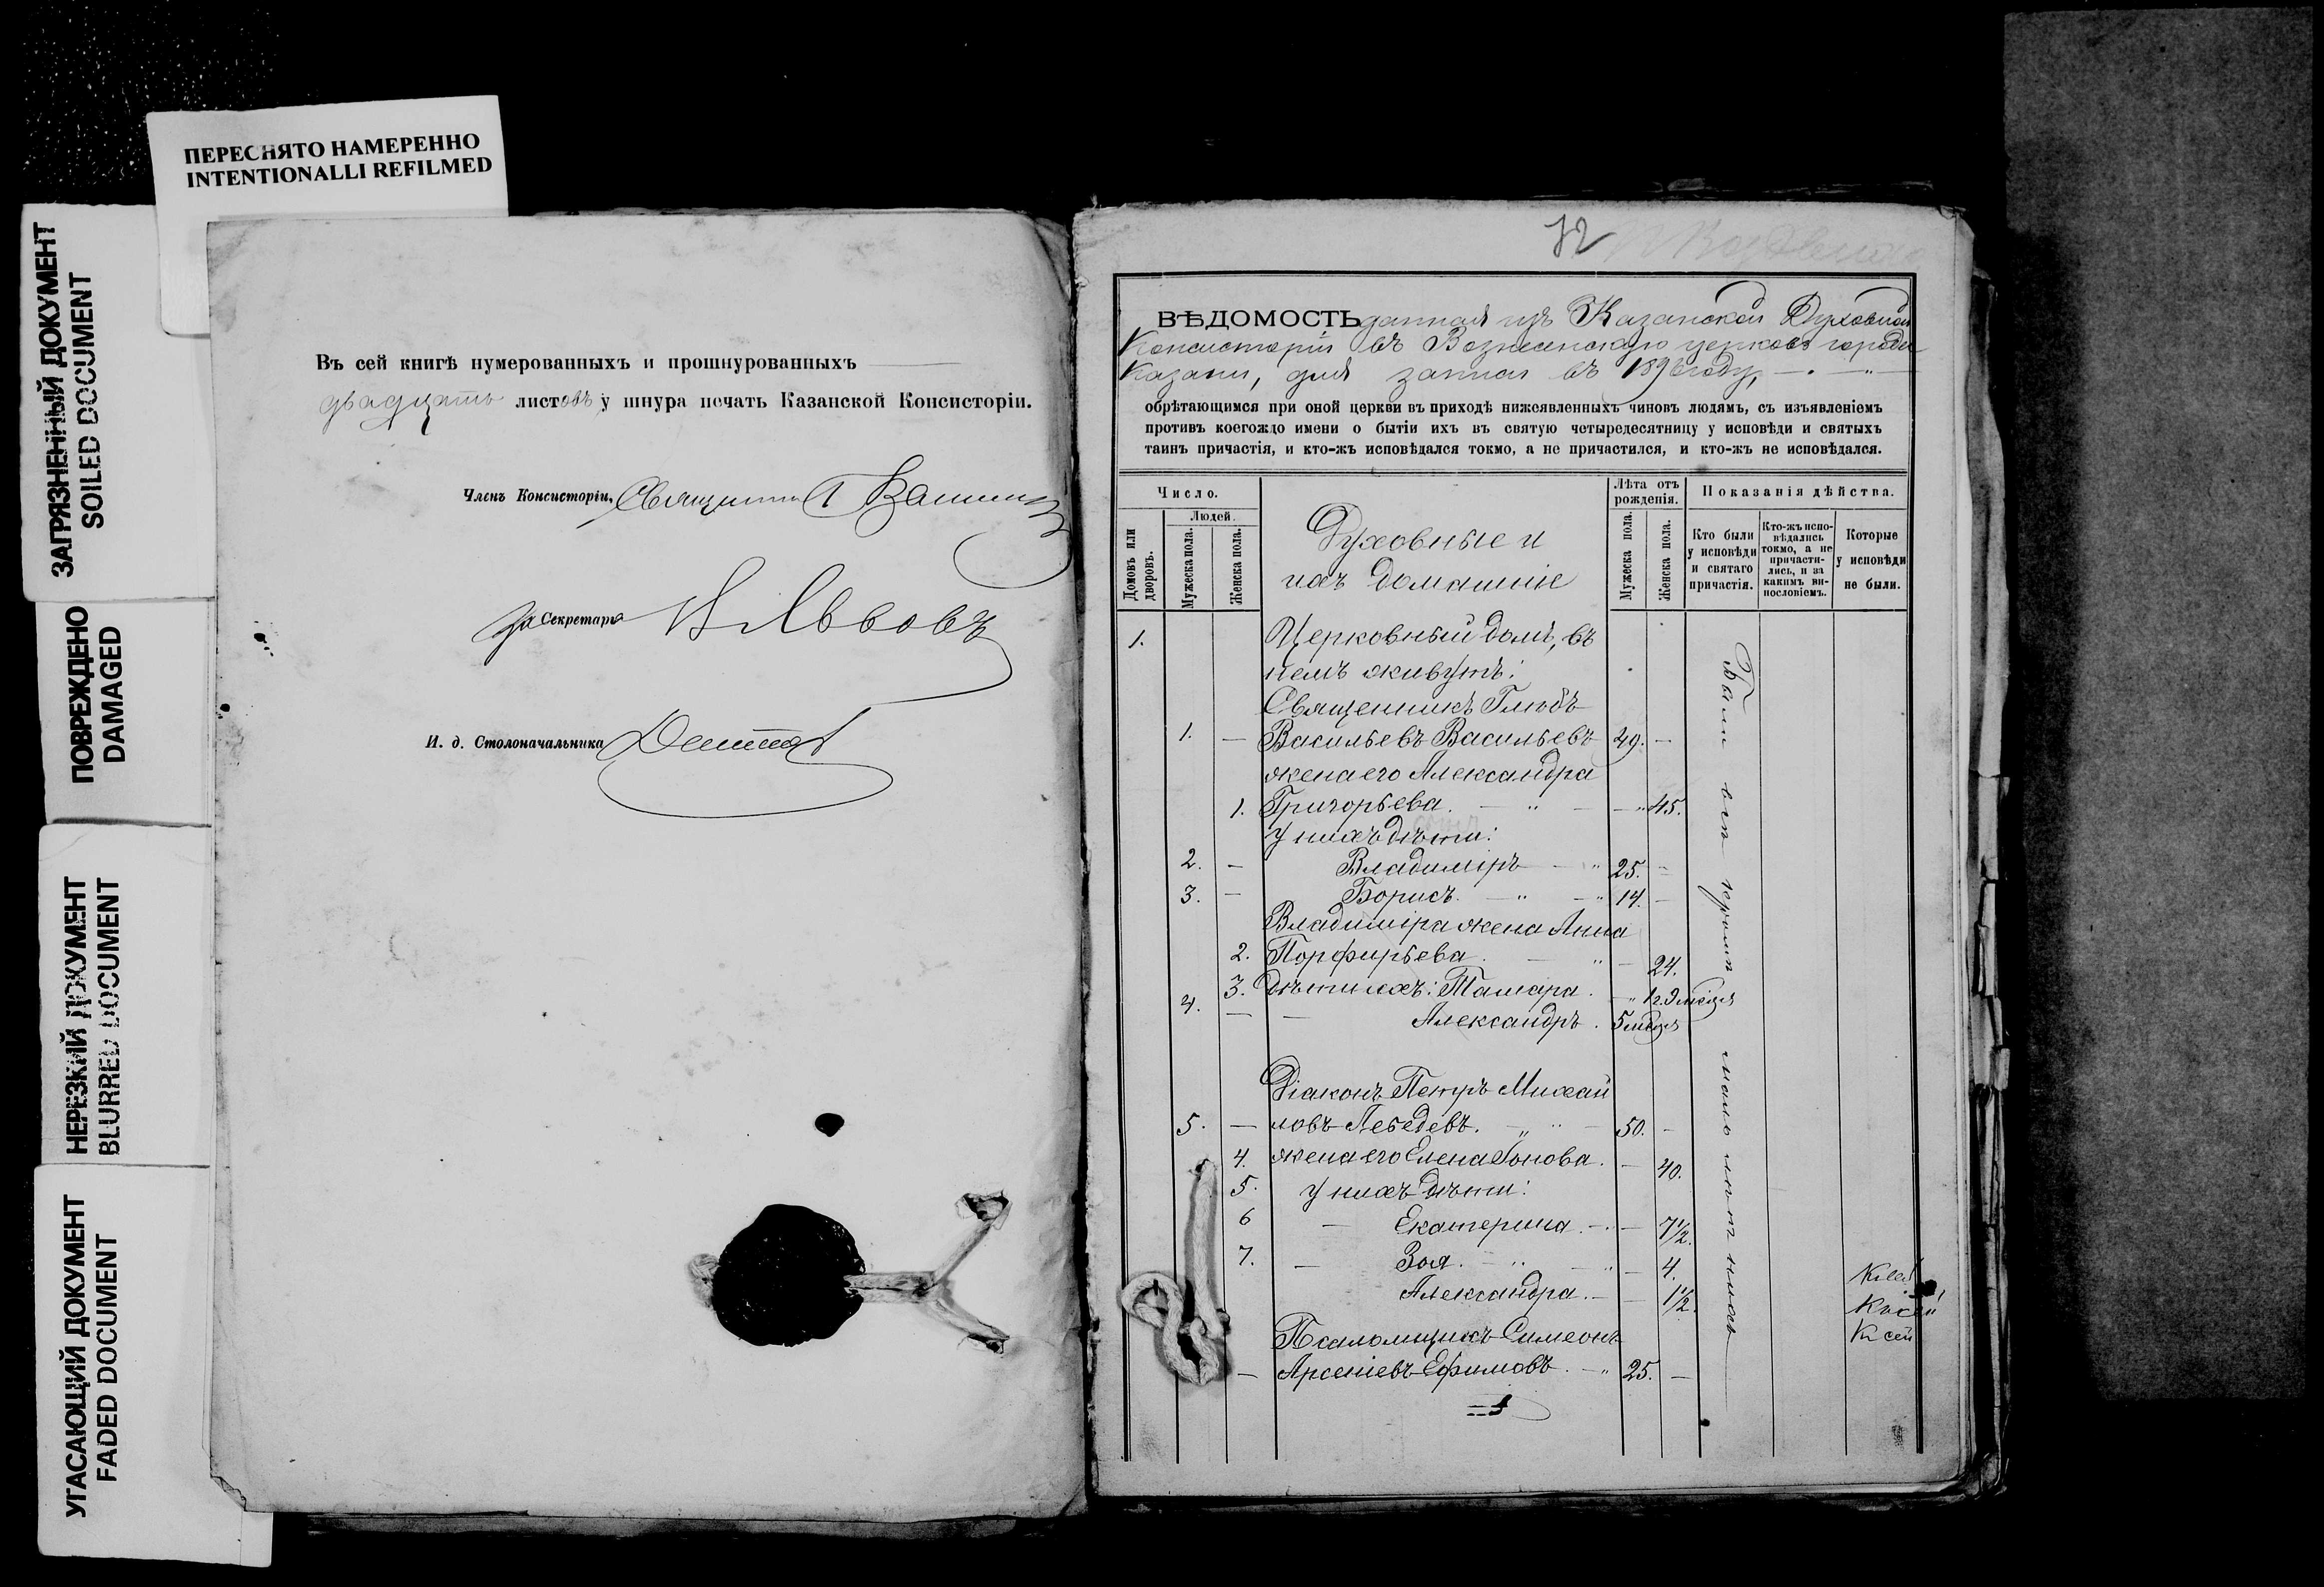 ПЕРЕСНЯТО НАМЕРЕННО
INTENTIONALLI REFILMED
ЗАГРЯЗНЕННЫЙ ДОКУМЕНТ
SOILED DOCUMENT
ПОВРЕЖДЕНО
DAMAGED
НЕРЕЗКИЙ ДОКУМЕНТ
BLURRED DOCUMENT
УГАСАЮЩИЙ ДОКУМЕНТ
FADED DOCUMENT
Въ сей книгѣ нумерованныхъ и прошнурованныхъ
двадцать листовъ у шнура печать Казанской Консисторіи.
Членъ Консисторіи, Священникъ
за Секретаря Н Львовъ
И. д. Столоначальника
12
ВѢДОМОСТЬ данная изъ Казанской Духовной
Консисторіи въ Вознесенскую церковь города
Казани, для записи въ 1896 году,
обрѣтающимся при оной церкви въ приходѣ нижеявленныхъ чиновъ людямъ, съ изъявленіемъ
противъ коегождо имени о бытіи ихъ въ святую четыредесятницу у исповѣди и святыхъ
таинъ причастія, и кто-жъ исповѣдался токмо, а не причастился, и кто-жъ не исповѣдался.
Число.
Домовъ или дворовъ.
Людей.
Мужеска пола.
Женска пола.
Духовные и
ихъ домашніе
Лѣта отъ рожденія.
Мужеска пола.
Женска пола.
Показанія дѣйства.
Кто были у исповѣди и святаго причастія.
Кто-жъ исповѣдались токмо, а не причастились, и за какимъ винословіемъ.
Которые у исповѣди не были.
1. Церковный домъ, въ
немъ живутъ:
Священникъ Глѣбъ
1. — Васильевъ Васильевъ 49. —
жена его Александра
1. Григорьева. — 45.
У нихъ дѣти:
2. — Владиміръ 25. —
3. — Борисъ. 14. —
Владиміра жена Анна
2. Порфирьева. — 24.
3. дѣти ихъ: Тамара.
4. — Александръ. 5 мѣсяц
Діаконъ Петръ Михай
5. — ловъ Лебедевъ. 50. —
4. жена его Елена Іонова. — 40.
5. У нихъ дѣти:
6 — Екатерина. — 7½.
7. — Зоя. — 4.
Александра. — 1½.
Псаломщикъ Симеонъ
— Арсеніевъ Ефимовъ. 25. —
Были всѣ кромѣ малолѣтнихъ